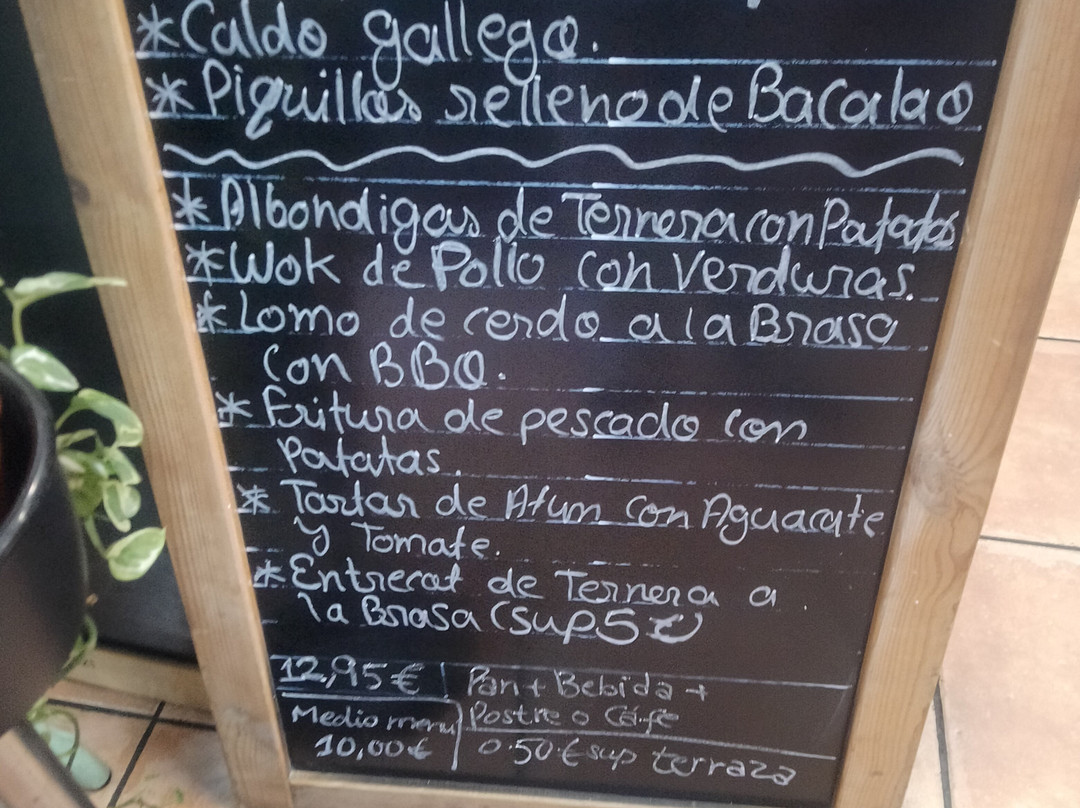 *Caldo gallego.
*Piquillos relleno de Bacalao
*Albondigas de Ternera con Patatas
*Wok de Pollo con Verduras.
*Lomo de cerdo a la Brasa
con BBQ.
*Fritura de pescado con
Patatas.
*Tartar de Atun con Aguacate
y Tomate.
*Entrecot de Ternera a
la Brasa (sup 5€)
12,95€ Pan + Bebida +
Medio menu Postre o Café
10,00€ 0.50€ sup terraza